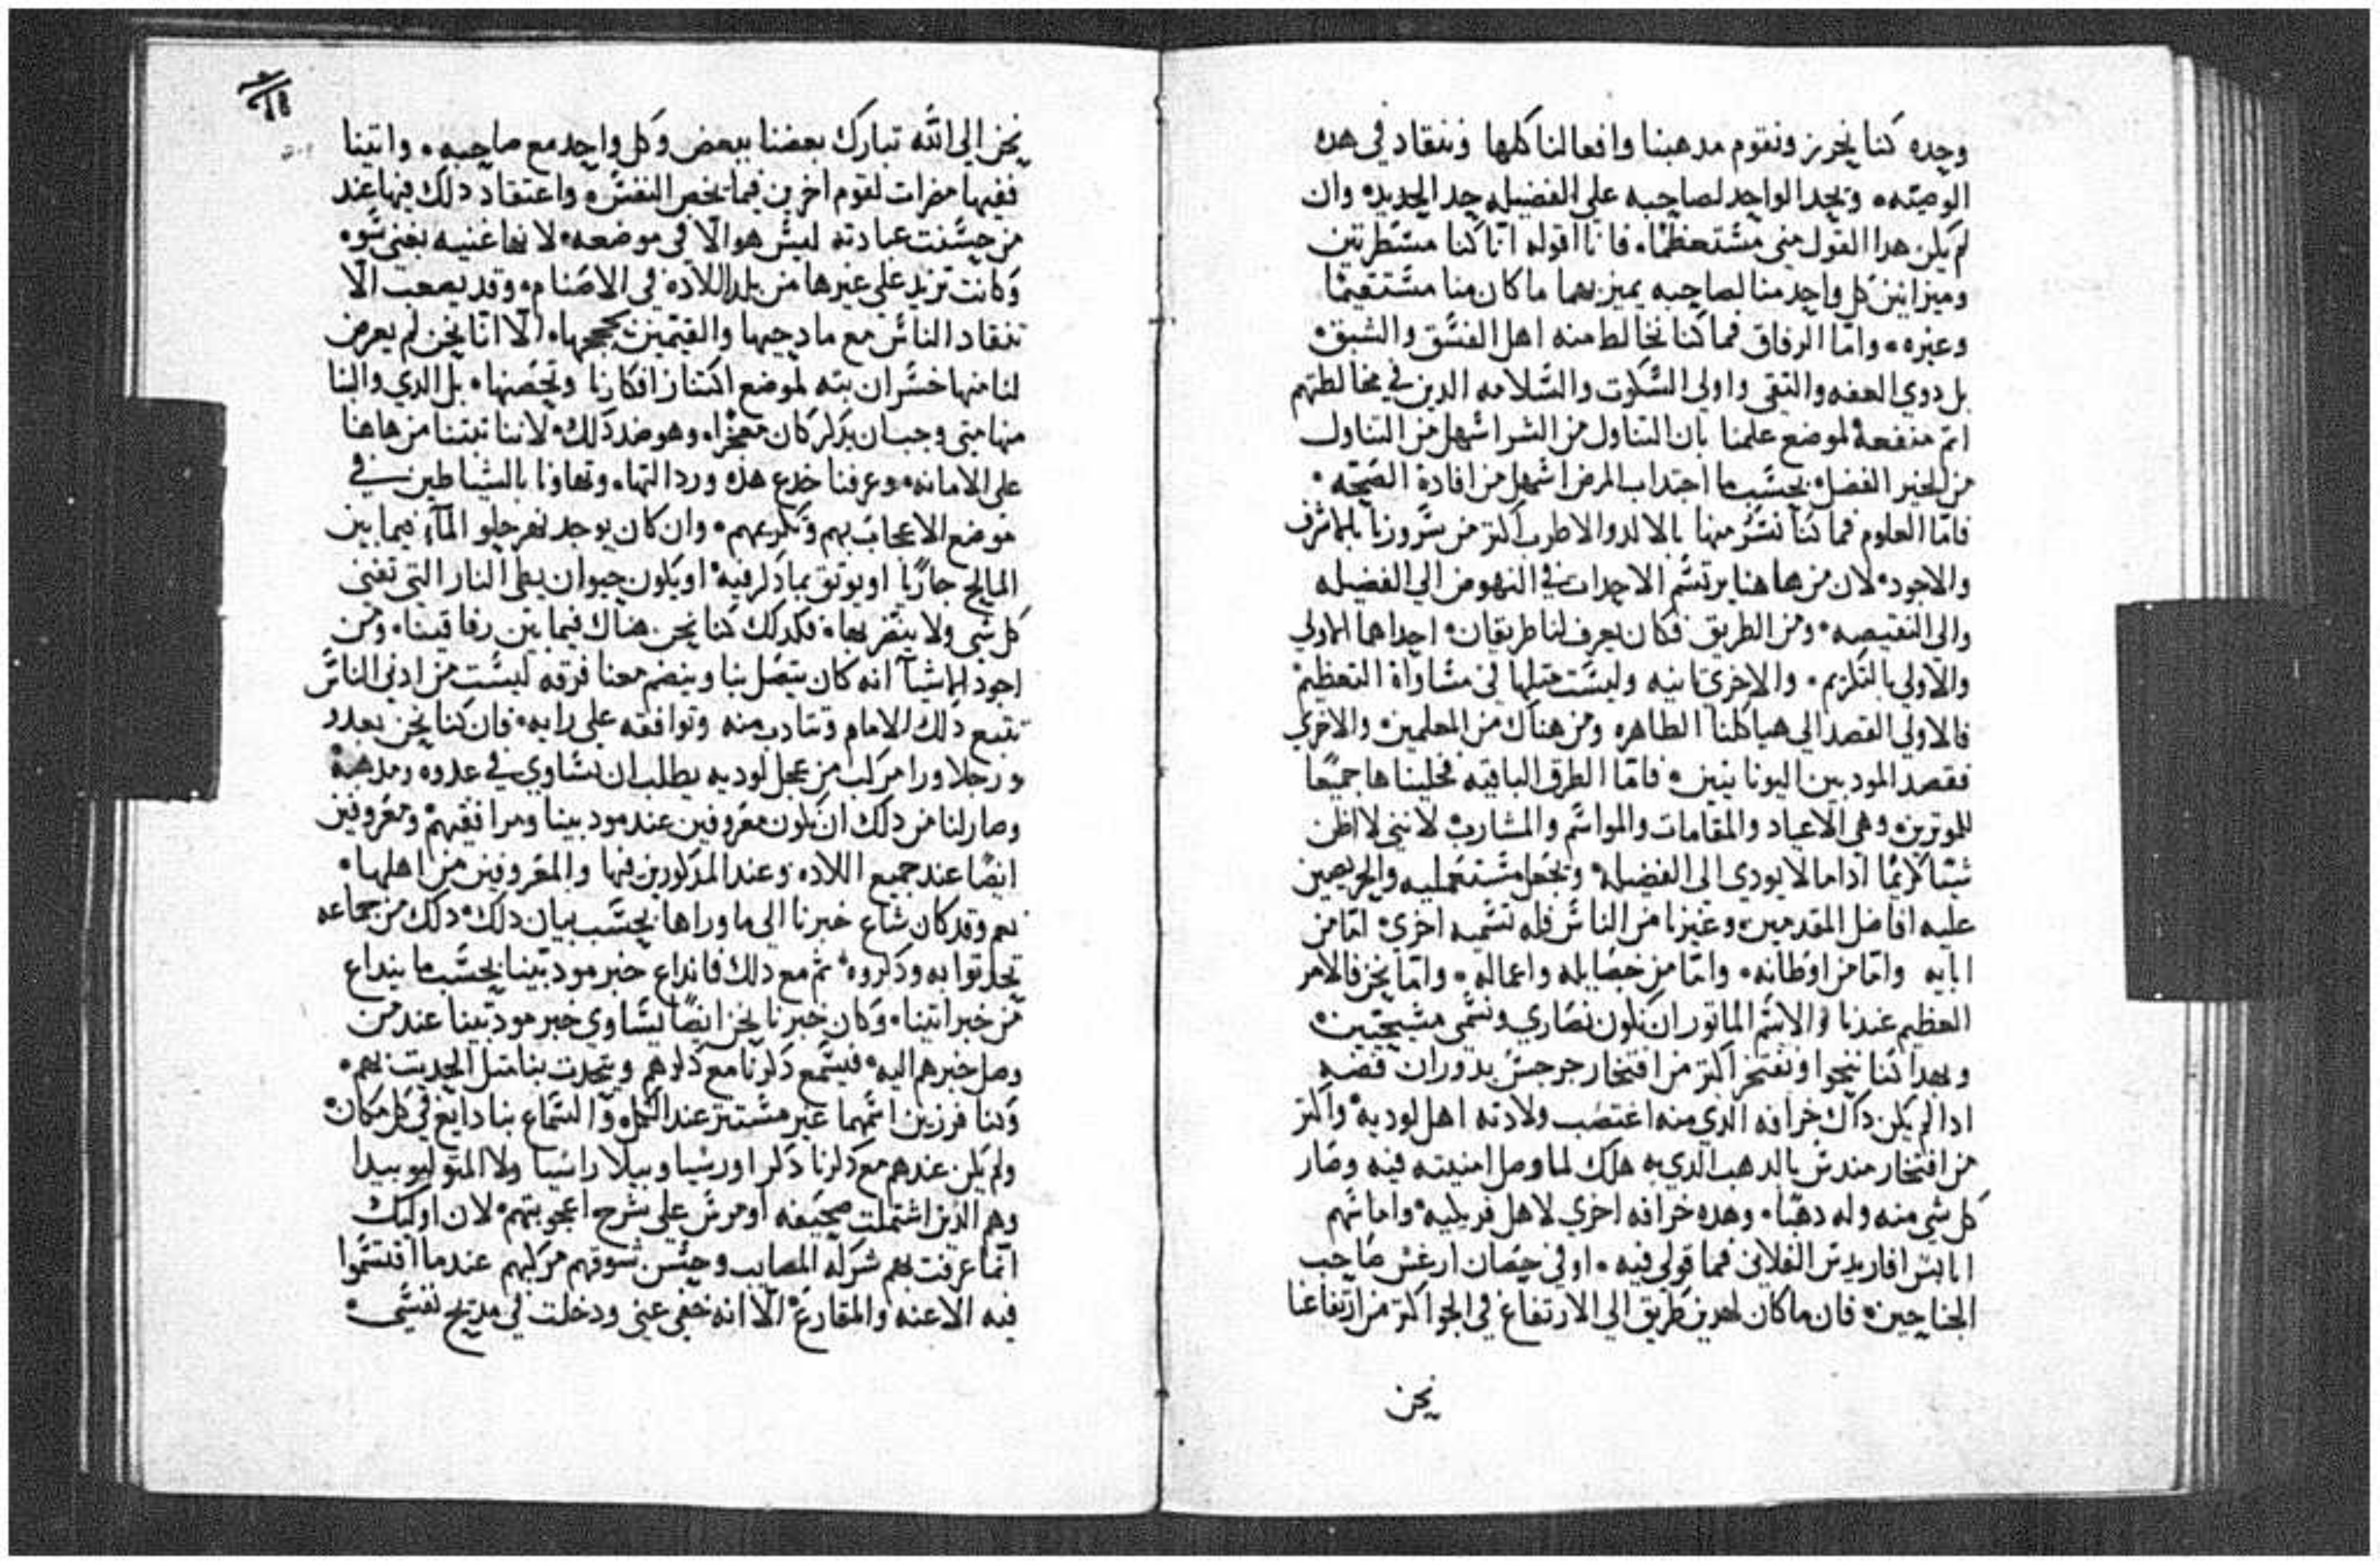 وحده كنا نحرز ونقوم مدهبنا وافعالنا كلها وننقاد في هده
الوصيّه، ونحد الواحد لصاحبه على الفضيله حد الحديد، وان
لم يكن هدا القول مني مستعظمًا، فانا اقوله انّا كنا مسطرتين
وميزانين كل واحد منا لصاحبه يميز بهما ما كان منا مستقيمًا
وغيره، وامّا الرفاق فما كنا نخالط منه اهل الفسق والشبق،
بل دوي العفه والتقى واولي السكوت والسلامه الدين في مخالطتهم
اتم منفعة لموضع علمنا بان التناول من الشر اسهل من التناول
من الخير الفضل، بحسب ما اجتداب المرض اسهل من افادة الصحّه،
فامّا العلوم فما كنا نسر منها بالالد والاطرب اكتر من سرورنا بالاشرف
والاجود، لان من هاهنا يرتسم الاحدات في النهوض الى الفضيله
والى النقيصه، ومن الطريق فكان يعرف لنا طريقان، احداهما الاولي
والاولى بالتكريم، والاخرى تانيه وليست متلها في مساواة التعظيم
فالاولى القصد الى هياكلنا الطاهره ومن هناك من المعلمين، والاخرى
فقصد المودبين اليونانيين، فامّا الطرق الباقيه فخليناها جميعًا
للموترين، وهي الاعياد والمقامات والمواسم والمشارب، لانني لا اظن
شيئًا كريمًا ادا ما لا يودي الى الفضيله، ويجعل مستعمليه والحريصين
عليه افاضل المقدمين، وغيرنا من الناس فله تسميه اخرى، امّا من
ابايه وامّا من اوطانه، وامّا من خصايله واعماله، وامّا نحن فالامر
العظيم عندنا والاسم الماتور ان نكون نصارى ونسمى مسيحيّين،
وبهدا كنا ننحوا ونفتخر اكتر من افتخار جرجس بدوران فصّه
ادا لم يكن داك خرافه الدي منه اغتصب ولادته اهل لوديه، واكتر
من افتخار ميدس بالدهب الدي به هلك لما وصل امنيته فيه وصار
كل شي منه وله دهبًا، وهده خرافه اخرى لاهل فريليه، واما سهم
ابابس افاريدس الفلاني فما قولي فيه، او في حصان ارغس صاحب
الجناحين، فان ما كان لهدين طريق الى الارتفاع في الجو اكتر من ارتفاعنا
نحن
نحن الى الله تبارك بعضنا ببعض وكل واحد مع صاحبه، واتينا
ففيها مضرات لقوم اخرين فيما يخص النفس، واعتقاد دلك فيها عند
من حسنت عبادته ليس هو الا في موضعه، لانها غنيه بغنى سوء
وكانت تزيد على غيرها من بلد اللاده في الاصنام، وقد يصعب الّا
تنقاد الناس مع مادحيها والقيمين بحججها، الّا انّا نحن لم يعرض
لنا منها خسران بته لموضع اكتناز افكارنا وتحصنها، بل الدي والنا
منها متى وجب ان يدكر كان معجزًا، وهو ضد دلك، لاننا تبتنا من هاهنا
على الامانه، وعرفنا خدع هده ورداالتها، وتهاونا بالشياطين في
موضع الاعجاب بهم وتكريمهم، وان كان يوجد نهر حلو المآء فيما بين
المالح جاريًا او يوتق بما دكر فيه، او يكون حيوان يطى النار التي تفنى
كل شي ولا ينضر بها، فكدلك كنا نحن هناك فيما بين رفاقينا، ومن
اجود الاشيآ انه كان يتصل بنا وينضم معنا فرقه ليست من ادنى الناس
تتبع دلك الامام وتتادب منه وتوافقه على رايه، فان كنا نحن بعدد
ورجلا ورا مركب من عجل لوديه يطلب ان نساوي في عدوه ومدهبه
وصار لنا من دلك ان نكون معروفين عند مودبينا ومرافقيهم ومعروفين
ايضًا عند جميع اللاده وعند المدكورين فيها والمعروفين من اهلها،
نعم وقد كان شاع خبرنا الى ما وراها بحسب بيان دلك، دلك من جماعه
تحدتوا به ودكروه، تم مع دلك فانداع خبر مودبينا بحسب ما ينداع
من خبر اتينا، وكان خبرنا نحن ايضًا يساوي خبر مودبينا عند من
وصل خبرهم اليه، فيسمع دكرنا مع دكرهم ويتحدت بنا متل الحديت بهم،
وكنا فرزين اسمهما غير مستتر عند الكل، والسماع بنا دايع في كل مكان،
ولم يكن عندهم مع دكرنا دكر اورسيا وبيلا راسيا ولا المتوليو بيدا
وهم الدين اشتملت صحيفه اومرس على شرح اعجوبتهم، لان اوليك
انّما عرفت بهم شركة المصايب وحسن سوقهم مركبهم عندما اقتسموا
فيه الاعنه والمقارع، الّا انه خفي عني ودخلت في مديح نفسي،